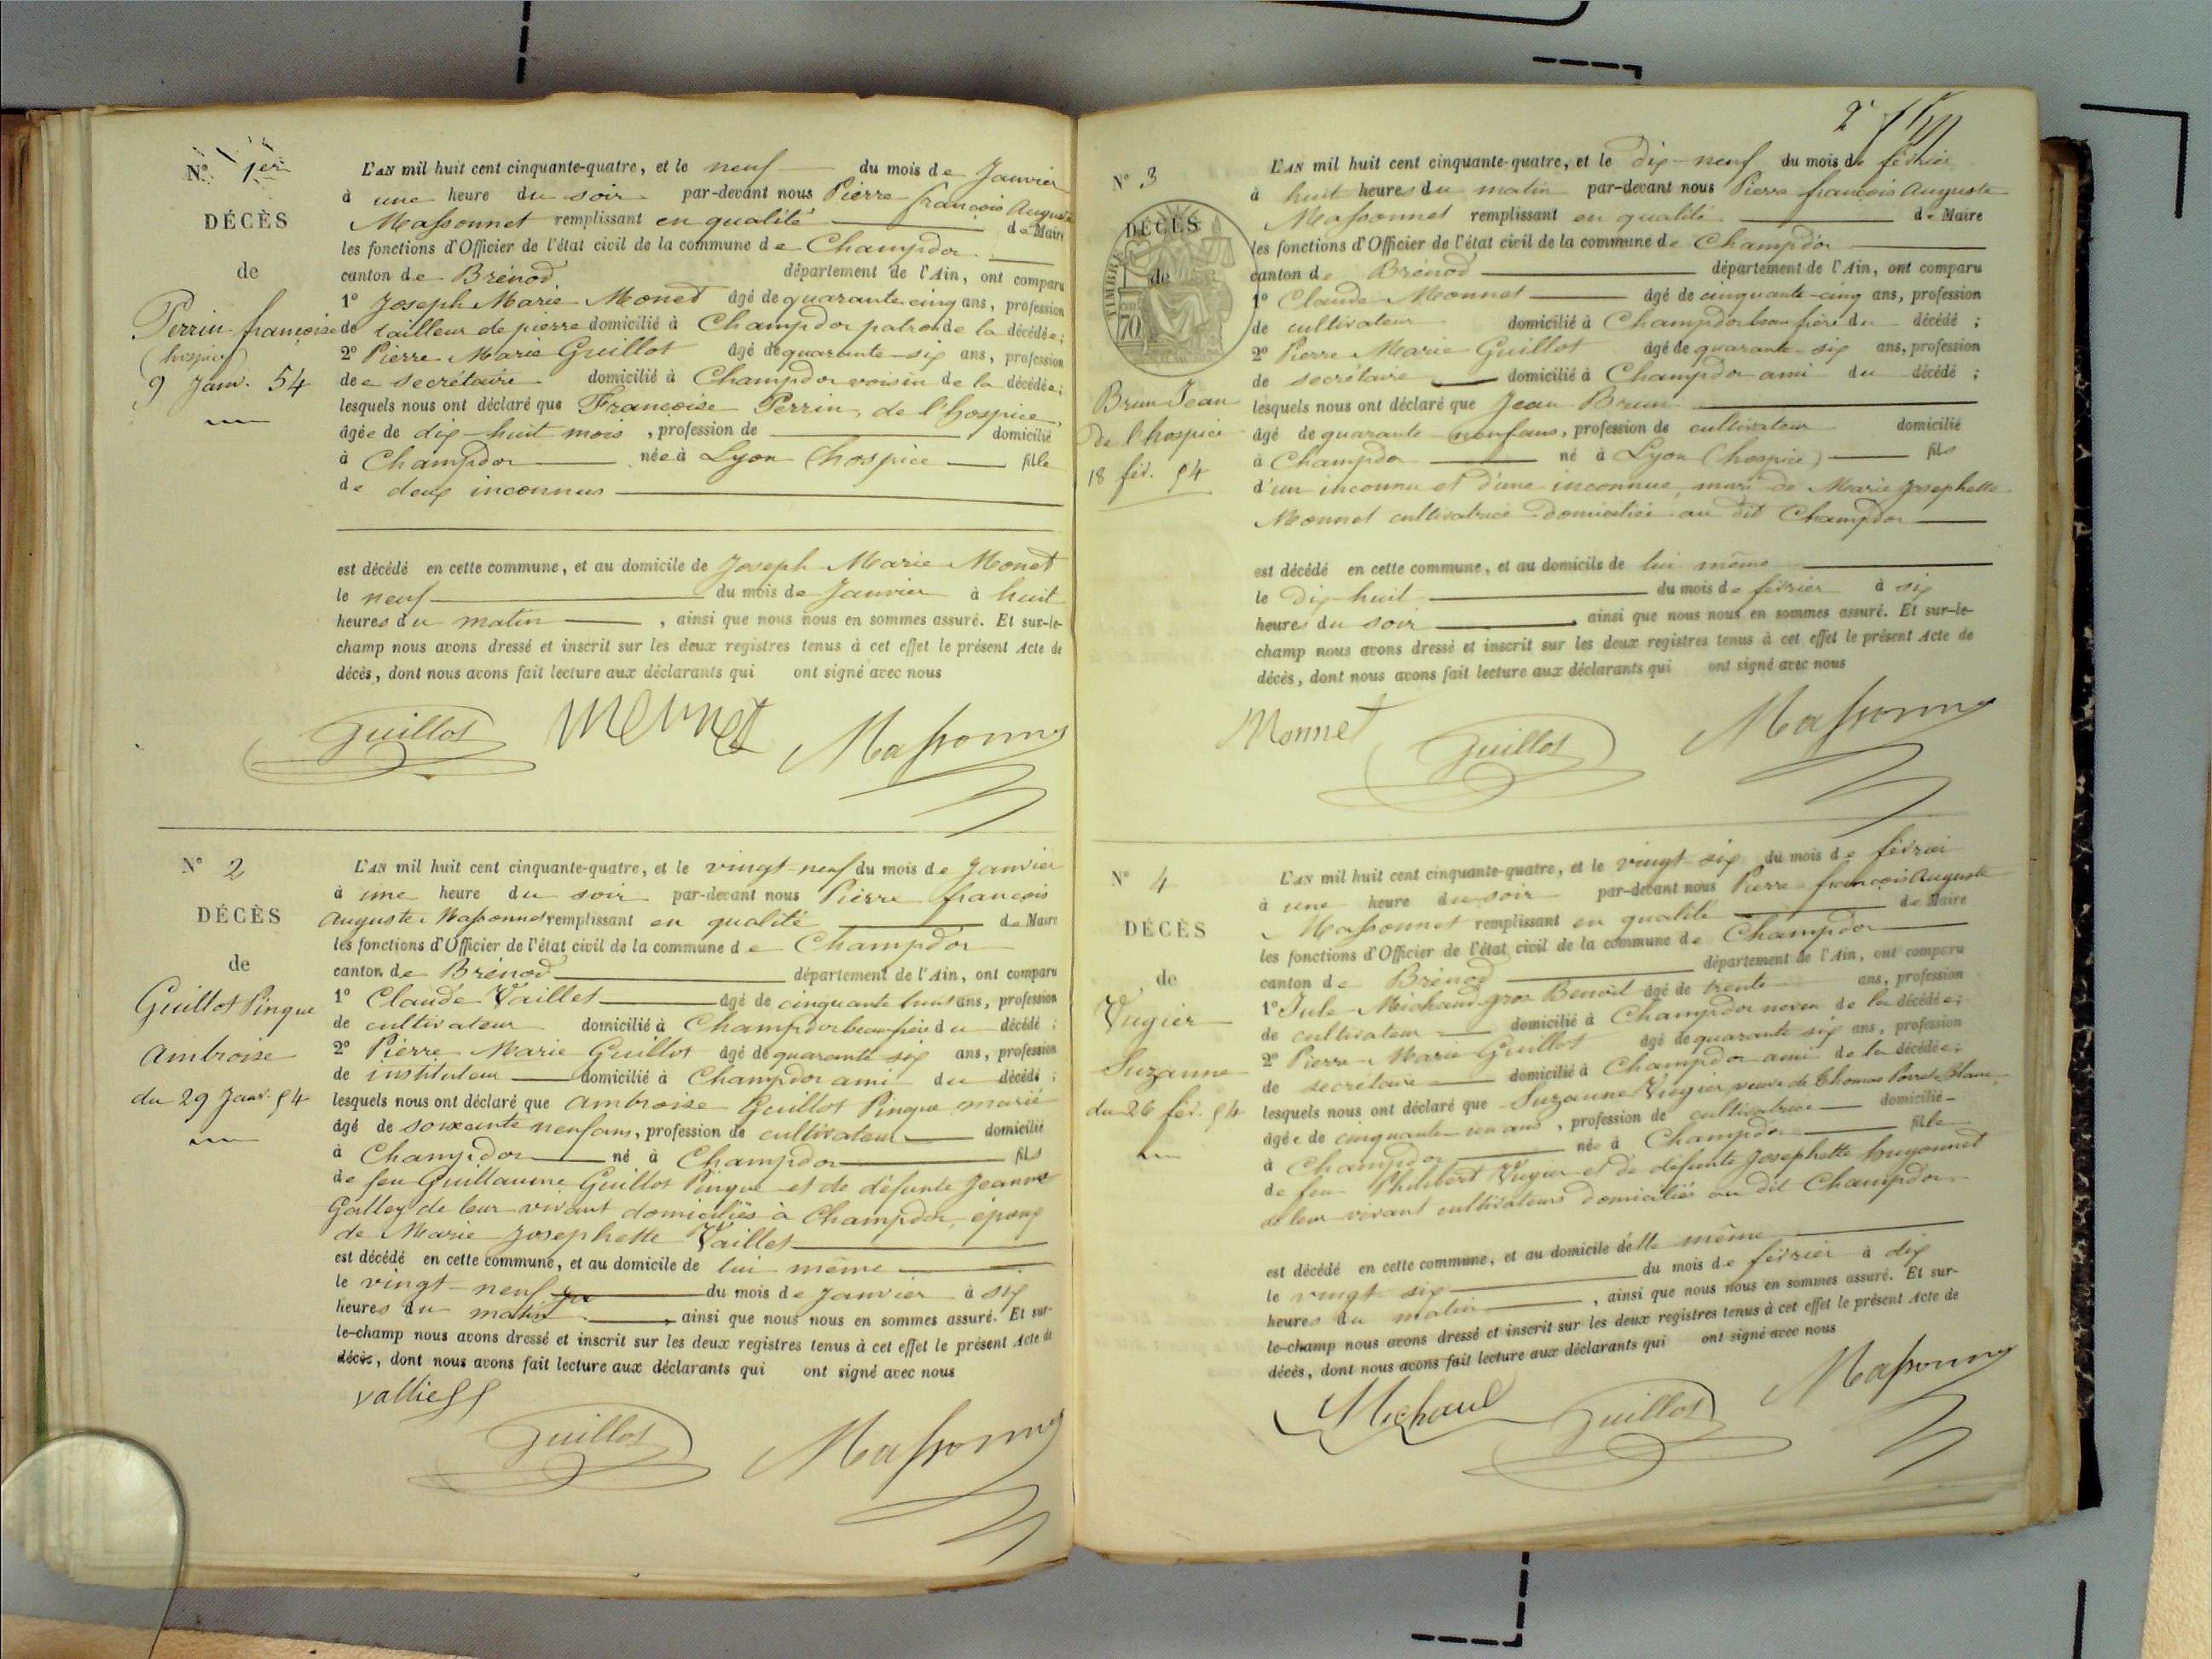 N° 1er
DÉCÈS
de
Perrin françoise
(hospice)
9 Janv. 54
L'AN mil huit cent cinquante-quatre, et le neuf du mois de Janvier
à une heure du soir par-devant nous Pierre françois Auguste
Massonnet remplissant en qualité de Maire
les fonctions d'Officier de l'état civil de la commune de Champdor
canton de Brénod département de l'Ain, ont comparu
1° Joseph Marie Monet âgé de quarante cinq ans, profession
de tailleur de pierre domicilié à Champdor patron de la décédée;
2° Pierre Marie Guillot âgé de quarante-six ans, profession
de secrétaire domicilié à Champdor voisin de la décédée;
lesquels nous ont déclaré que Françoise Perrin, de l'hospice,
âgée de dix-huit mois, profession de domicilié
à Champdor née à Lyon (hospice fille
de deux inconnus
est décédé en cette commune, et au domicile de Joseph Marie Monet
le neuf du mois de Janvier à huit
heures du matin, ainsi que nous nous en sommes assuré. Et sur-le-
champ nous avons dressé et inscrit sur les deux registres tenus à cet effet le présent Acte de
décès, dont nous avons fait lecture aux déclarants qui ont signé avec nous
Guillot Monnet Massonnet
N° 2
DÉCÈS
de
Guillot Pinque
Ambroise
du 29 Janv. 54
L'AN mil huit cent cinquante-quatre, et le vingt-neuf du mois de Janvier
à une heure du soir par-devant nous Pierre françois
Auguste Massonnet remplissant en qualité de Maire
les fonctions d'Officier de l'état civil de la commune de Champdor
canton de Brénod département de l'Ain, ont comparu
1° Claude Vaillet âgé de cinquante huit ans, profession
de cultivateur domicilié à Champdor beau frère du décédé;
2° Pierre Marie Guillot âgé de quarante six ans, profession
de instituteur domicilié à Champdor ami du décédé;
lesquels nous ont déclaré que Ambroise Guillot Pinque marié
âgé de soixante neuf ans, profession de cultivateur domicilié
à Champdor né à Champdor fils
de feu Guillaume Guillot Pinque et de défunte Jeanne
Galley de leur vivant domiciliés à Champdor, époux
de Marie Josephette Vaillet
est décédé en cette commune, et au domicile de lui même
le vingt-neuf du mois de Janvier à six
heures du matin, ainsi que nous nous en sommes assuré. Et sur-
le-champ nous avons dressé et inscrit sur les deux registres tenus à cet effet le présent Acte de
décès, dont nous avons fait lecture aux déclarants qui ont signé avec nous
Guillot Massonnet
2
N° 3
DÉCÈS
de
TIMBRE
70
Brun Jean
de l'hospice
18 fév. 54
L'AN mil huit cent cinquante-quatre, et le dix-neuf du mois de février
à huit heures du matin par-devant nous Pierre françois Auguste
Massonnet remplissant en qualité de Maire
les fonctions d'Officier de l'état civil de la commune de Champdor
canton de Brénod département de l'Ain, ont comparu
1° Claude Monnet âgé de cinquante-cinq ans, profession
de cultivateur domicilié à Champdor beau frère du décédé;
2° Pierre Marie Guillot âgé de quarante-six ans, profession
de secrétaire domicilié à Champdor ami du décédé;
lesquels nous ont déclaré que Jean Brun
âgé de quarante-neuf ans, profession de cultivateur domicilié
à Champdor né à Lyon (hospice) fils
d'un inconnu et d'une inconnue, mari de Marie Josephette
Monnet cultivatrice domiciliée au dit Champdor
est décédé en cette commune, et au domicile de lui même
le dix-huit du mois de février à six
heures du soir ainsi que nous nous en sommes assuré. Et sur-le-
champ nous avons dressé et inscrit sur les deux registres tenus à cet effet le présent Acte de
décès, dont nous avons fait lecture aux déclarants qui ont signé avec nous
Monnet Guillot Massonnet
N° 4
DÉCÈS
de
Vugier
Suzanne
du 26 fév. 54
L'AN mil huit cent cinquante-quatre, et le vingt-six du mois de février
à une heure du soir par-devant nous Pierre françois Auguste
Massonnet remplissant en qualité de Maire
les fonctions d'Officier de l'état civil de la commune de Champdor
canton de Brénod département de l'Ain, ont comparu
1° Jule Michaud gros Benoit âgé de trente ans, profession
de cultivateur domicilié à Champdor neveu de la décédée;
2° Pierre Marie Guillot âgé de quarante six ans, profession
de secrétaire domicilié à Champdor ami de la décédée;
lesquels nous ont déclaré que Suzanne Vugier veuve de Thomas Blanc,
âgée de cinquante-un ans, profession de cultivatrice domicilié
à Champdor née à Champdor fille
de feu Philibert Vugier et de défunte Josephette hugonnet
de leur vivant cultivateurs domiciliés au dit Champdor
est décédé en cette commune, et au domicile d'elle même
le vingt six du mois de février à dix
heures du matin, ainsi que nous nous en sommes assuré. Et sur-
le-champ nous avons dressé et inscrit sur les deux registres tenus à cet effet le présent Acte de
décès, dont nous avons fait lecture aux déclarants qui ont signé avec nous
Michaud Guillot Massonnet